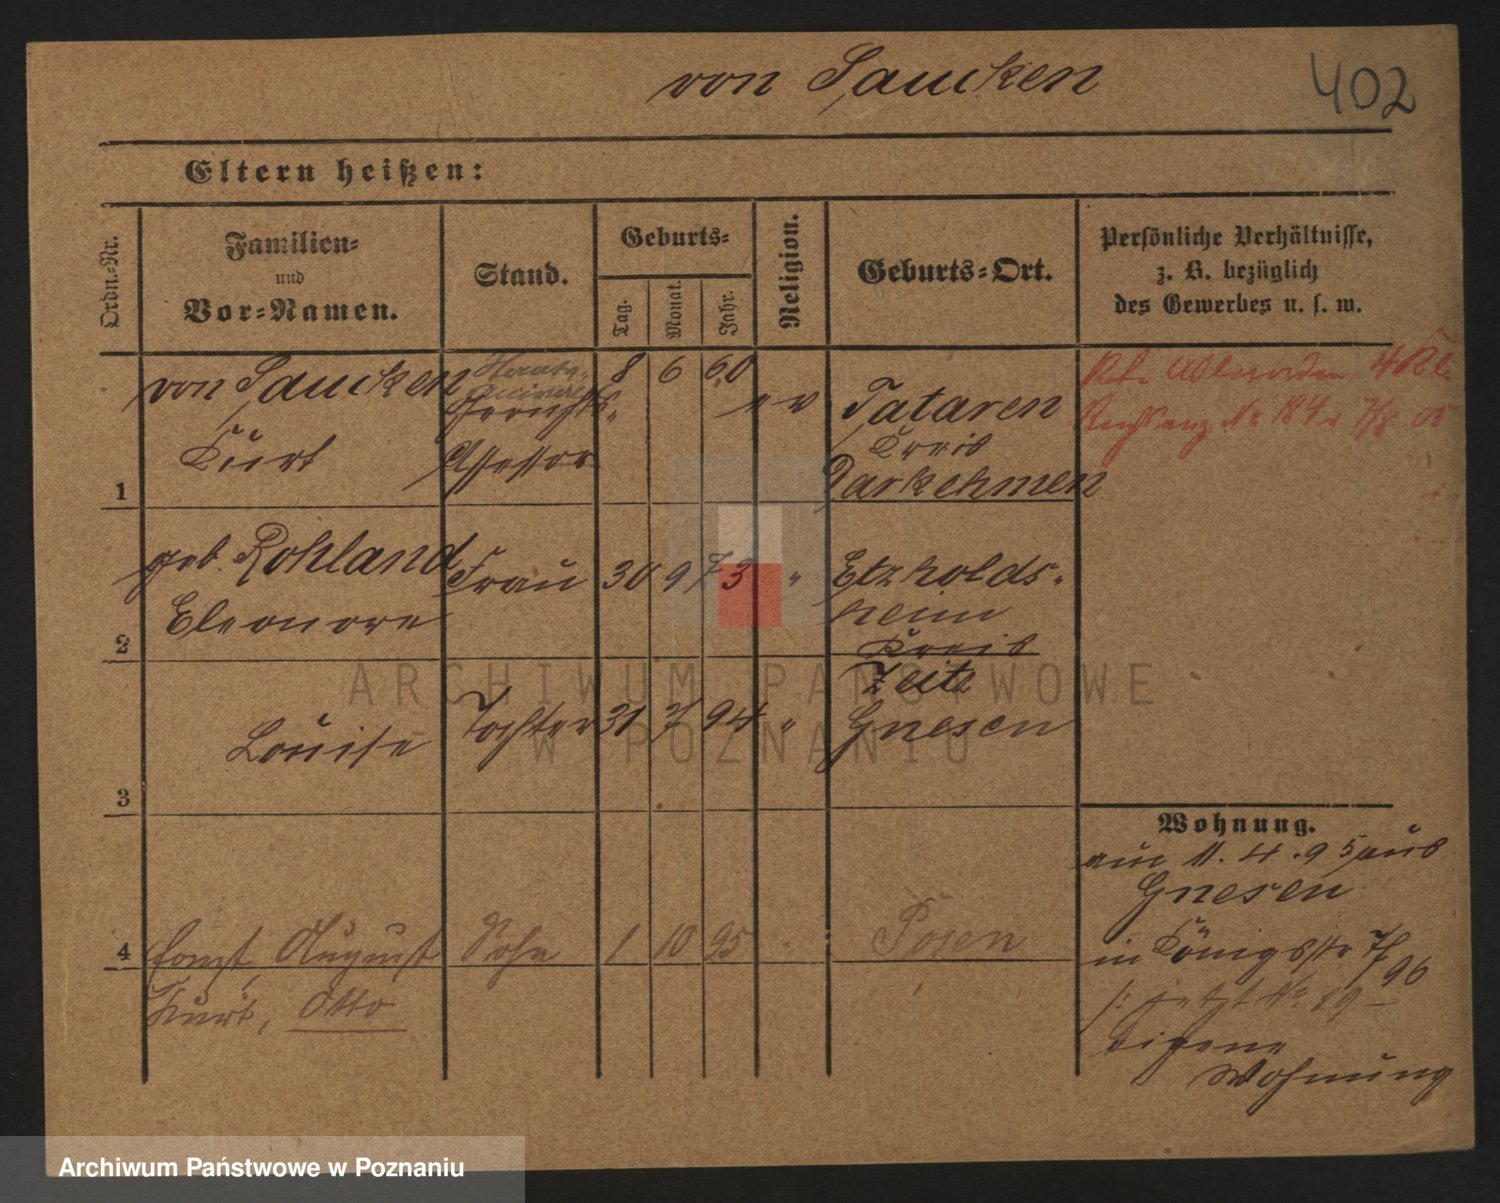 von Saucken
402
Eltern heißen:
Ordn.-Nr.
Familien-
und
Vor-Namen.
Stand.
Geburts-
Tag.
Monat.
Jahr.
Religion.
Geburts-Ort.
Persönliche Verhältnisse,
z. B. bezüglich
des Gewerbes u. s. w.
1
von Saucken
Kurt
Gerichts-
Assessor
8 6 60
ev
Tataren
Kreis
Darkehmen
Rote Adlerorden 4 Kl.
Reichsanz. No 184 v. 7/8 05
2
geb. Rohland
Eleonore
Frau
30 9 73
"
Etzholds-
heim
Kreis
Zeitz
3
Louise
Tochter
31 7 94
"
Gnesen
4
Ernst, August
Kurt, Otto
Sohn
1 10 95
"
Posen
Wohnung.
am 11.4.95 aus
Gnesen
in Königsstr 7
96
jetzt No 19
Eigene
Wohnung
ARCHIWUM PAŃSTWOWE
W POZNANIU
Archiwum Państwowe w Poznaniu